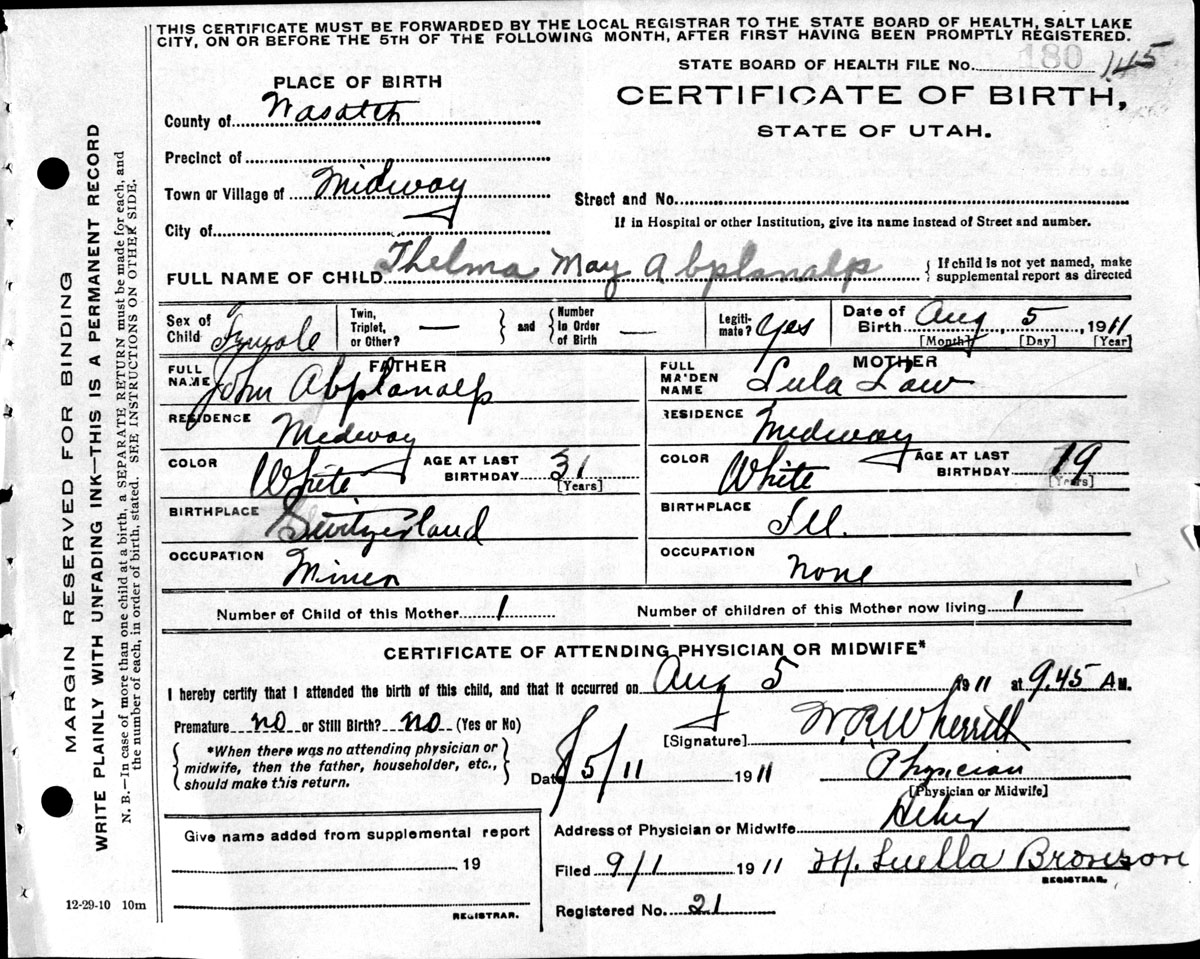 THIS CERTIFICATE MUST BE FORWARDED BY THE LOCAL REGISTRAR TO THE STATE BOARD OF HEALTH, SALT LAKE
CITY, ON OR BEFORE THE 5TH OF THE FOLLOWING MONTH, AFTER FIRST HAVING BEEN PROMPTLY REGISTERED.
STATE BOARD OF HEALTH FILE No. 180 145
PLACE OF BIRTH
CERTIFICATE OF BIRTH,
STATE OF UTAH.
County of Wasatch
Precinct of
Town or Village of Midway
Street and No.
City of
If in Hospital or other Institution, give its name instead of Street and number.
FULL NAME OF CHILD Thelma May Abplanalp { If child is not yet named, make
supplemental report as directed
Sex of Child Female
Twin, Triplet, or Other? —
and
Number In Order of Birth —
Legiti-mate? Yes
Date of Birth Aug 5 1911
[Month] [Day] [Year]
FATHER
FULL NAME John Abplanalp
RESIDENCE Medway
COLOR White AGE AT LAST BIRTHDAY 31
[Years]
BIRTHPLACE Switzerland
OCCUPATION Miner
MOTHER
FULL MAIDEN NAME Lula Law
RESIDENCE Medway
COLOR White AGE AT LAST BIRTHDAY 19
[Years]
BIRTHPLACE Ill.
OCCUPATION None
Number of Child of this Mother 1 Number of children of this Mother now living 1
CERTIFICATE OF ATTENDING PHYSICIAN OR MIDWIFE*
I hereby certify that I attended the birth of this child, and that it occurred on Aug 5 1911 at 9.45 A M.
Premature no or Still Birth? no (Yes or No)
*When there was no attending physician or
midwife, then the father, householder, etc.,
should make this return.
[Signature] W.R. Wherritt
Date 8/5/11 1911 Physician
[Physician or Midwife]
Address of Physician or Midwife Heber
Give name added from supplemental report
19
REGISTRAR.
Filed 9/1 1911 M. Luella Bronson
REGISTRAR.
Registered No. 21
12-29-10 10m
MARGIN RESERVED FOR BINDING
WRITE PLAINLY WITH UNFADING INK—THIS IS A PERMANENT RECORD
N. B.—In case of more than one child at a birth, a SEPARATE RETURN must be made for each, and
the number of each, in order of birth, stated. SEE INSTRUCTIONS ON OTHER SIDE.